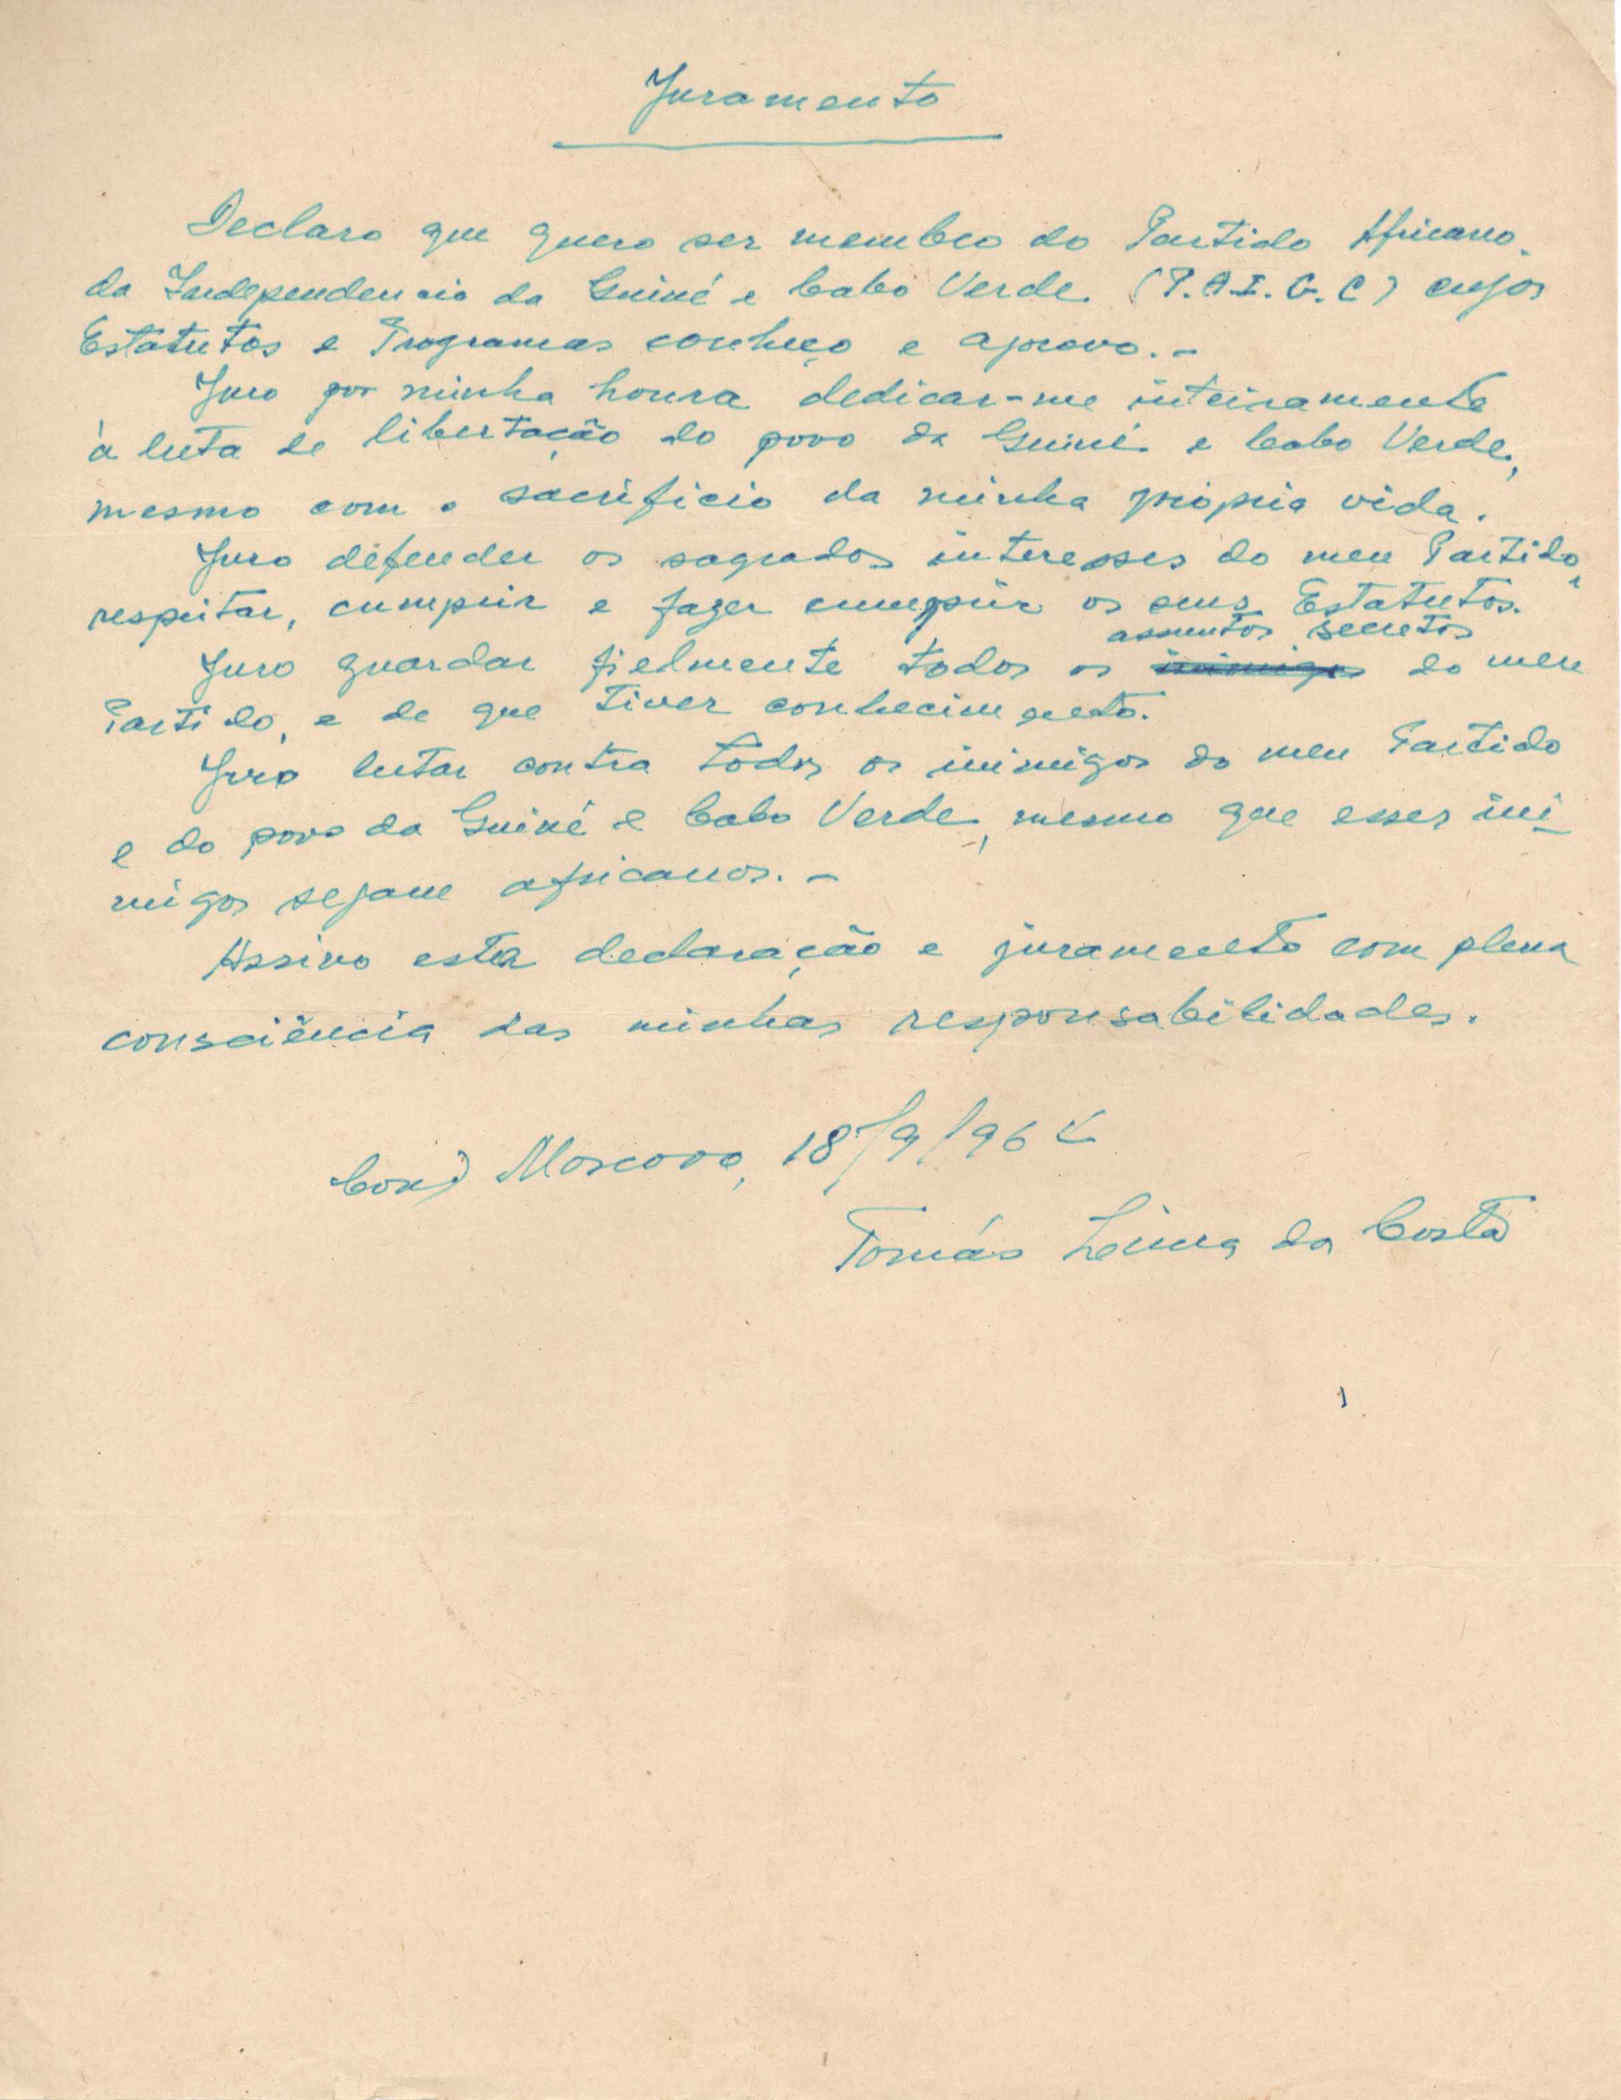 Juramento
Declaro que quero ser membro do Partido Africano
da Independencia da Guiné e Cabo Verde (P.A.I.G.C) cujos
Estatutos e Programas conheço e aprovo.-
Juro por minha honra dedicar-me inteiramente
à luta de libertação do povo da Guiné e Cabo Verde,
mesmo com o sacrificio da minha própria vida.
Juro defender os sagrados interesses do meu Partido,
respeitar, cumprir e fazer cumprir os seus Estatutos.
assuntos secretos
Juro guardar fielmente todos os inimigos do meu
Partido, e de que tiver conhecimento.
Juro lutar contra todos os inimigos do meu Partido
e do povo da Guiné e Cabo Verde, mesmo que esses ini
migos sejam africanos.-
Assino esta declaração e juramento com plena
consciência das minhas responsabilidades.
Moscovo, 18/9/96
Tomás Lima da Costa